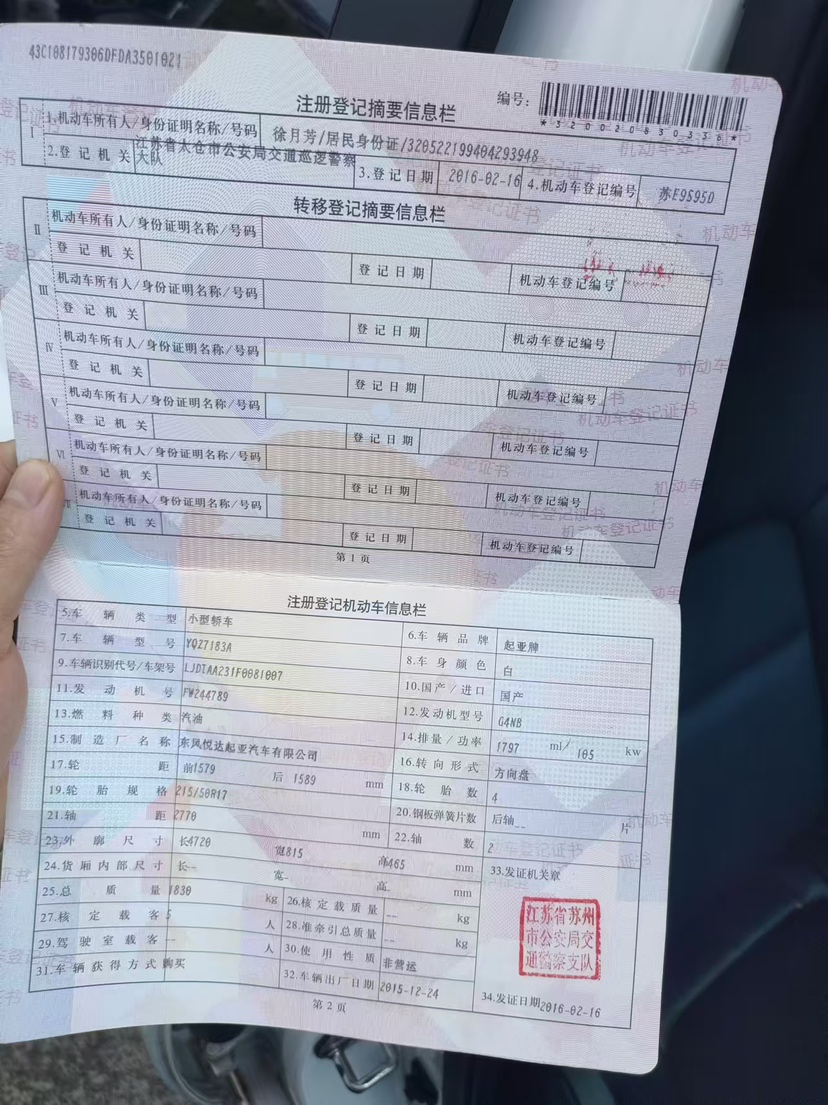 43C108179306DFDA3501021
编号：
*320020830336*
注册登记摘要信息栏
I 1.机动车所有人/身份证明名称/号码 徐月芳/居民身份证/320522199404293948
2.登记机关 江苏省太仓市公安局交通巡逻警察大队 3.登记日期 2016-02-16 4.机动车登记编号 苏E9S95D
转移登记摘要信息栏
II 机动车所有人/身份证明名称/号码
登记机关 登记日期 机动车登记编号
III 机动车所有人/身份证明名称/号码
登记机关 登记日期 机动车登记编号
IV 机动车所有人/身份证明名称/号码
登记机关 登记日期 机动车登记编号
V 机动车所有人/身份证明名称/号码
登记机关 登记日期 机动车登记编号
VI 机动车所有人/身份证明名称/号码
登记机关 登记日期 机动车登记编号
机动车所有人/身份证明名称/号码
登记机关 登记日期 机动车登记编号
第1页
注册登记机动车信息栏
5.车辆类型 小型轿车 6.车辆品牌 起亚牌
7.车辆型号 YQZ7183A 8.车身颜色 白
9.车辆识别代号/车架号 LJDTAA231F0081007 10.国产/进口 国产
11.发动机号 FW244789 12.发动机型号 G4NB
13.燃料种类 汽油 14.排量/功率 1797 ml/ 105 kw
15.制造厂名称 东风悦达起亚汽车有限公司 16.转向形式 方向盘
17.轮距 前1579 后1589 mm 18.轮胎数 4
19.轮胎规格 215/50R17 20.钢板弹簧片数 后轴-- 片
21.轴距 2770 mm 22.轴数 2
23.外廓尺寸 长4720 宽1815 高1465 mm 33.发证机关章
24.货厢内部尺寸 长-- 宽- 高- mm
25.总质量 1830 kg 26.核定载质量 -- kg
27.核定载客 5 人 28.准牵引总质量 -- kg
29.驾驶室载客 -- 人 30.使用性质 非营运
31.车辆获得方式 购买 32.车辆出厂日期 2015-12-24 34.发证日期 2016-02-16
江苏省苏州
市公安局交
通警察支队
第2页